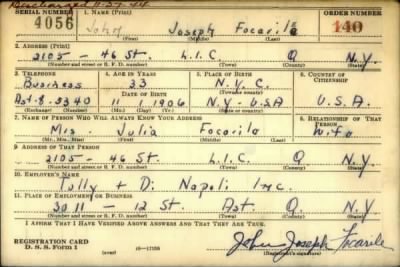 Discharged 11-27-44
SERIAL NUMBER 1. NAME (Print) ORDER NUMBER
4056 John Joseph Focarile 140
(First) (Middle) (Last)
2. ADDRESS (Print)
2105 - 46 St. L.I.C. Q N.Y.
(Number and street or R. F. D. number) (Town) (County) (State)
3. TELEPHONE 4. AGE IN YEARS 5. PLACE OF BIRTH 6. COUNTRY OF CITIZENSHIP
Business 33 N.Y.C.
DATE OF BIRTH (Town or county)
Ast-8-0340 11 1 1906 N.Y - USA U.S.A.
(Exchange) (Number) (Mo.) (Day) (Yr.) (State or country)
7. NAME OF PERSON WHO WILL ALWAYS KNOW YOUR ADDRESS 8. RELATIONSHIP OF THAT PERSON
Mrs. Julia Focarile Wife
(Mr., Mrs., Miss) (First) (Middle) (Last)
9. ADDRESS OF THAT PERSON
2105 - 46 St. L.I.C. Q N.Y.
(Number and street or R. F. D. number) (Town) (County) (State)
10. EMPLOYER'S NAME
Tully + Di Napoli Inc.
11. PLACE OF EMPLOYMENT OR BUSINESS
3011 - 12 St. Ast. Q. N.Y.
(Number and street or R. F. D. number) (Town) (County) (State)
I AFFIRM THAT I HAVE VERIFIED ABOVE ANSWERS AND THAT THEY ARE TRUE.
REGISTRATION CARD
D. S. S. Form 1 (over) John Joseph Focarile
(Registrant's signature)